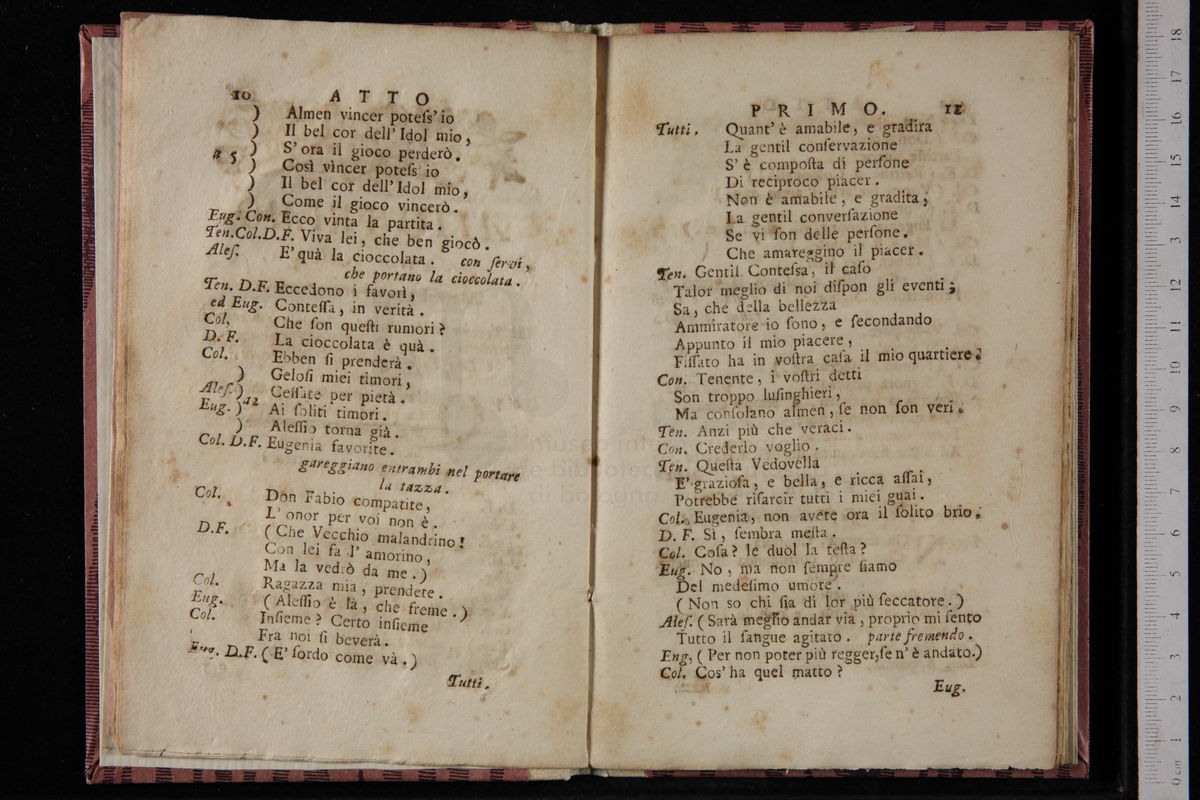 10 ATTO
) Almen vincer poteſs'io
) Il bel cor dell'Idol mio,
a 5 ) S'ora il gioco perderò.
) Così vincer poteſs'io
) Il bel cor dell'Idol mio,
) Come il gioco vincerò.
Eug. Con. Ecco vinta la partita.
Ten.Col.D.F. Viva lei, che ben giocò.
Aleſ. E' quà la cioccolata. con ſervi,
che portano la cioccolata.
Ten. D.F. Eccedono i favori,
ed Eug. Conteſſa, in verità.
Col. Che ſon queſti rumori?
D. F. La cioccolata è quà.
Col. Ebben ſi prenderà.
) Geloſi miei timori,
Aleſ.) Ceſſate per pietà.
Eug. ) a2 Ai ſoliti timori.
) Aleſſio torna già.
Col. D.F. Eugenia favorite.
gareggiano entrambi nel portare
la tazza.
Col. Don Fabio compatite,
L'onor per voi non è.
D.F. (Che Vecchio malandrino!
Con lei fa l'amorino,
Ma la vedrò da me.)
Col. Ragazza mia, prendete.
Eug. (Aleſſio è là, che freme.)
Col. Inſieme? Certo inſieme
Fra noi ſi beverà.
Eug. D.F. (E' ſordo come và.)
Tutti.
PRIMO. 11
Tutti. Quant'è amabile, e gradira
La gentil conſervazione
S'è compoſta di perſone
Di reciproco piacer.
Non è amabile, e gradita,
La gentil converſazione
Se vi ſon delle perſone.
Che amareggino il piacer.
Ten. Gentil Conteſsa, il caſo
Talor meglio di noi diſpon gli eventi;
Sa, che della bellezza
Ammiratore io ſono, e ſecondando
Appunto il mio piacere,
Fiſſato ha in voſtra caſa il mio quartiere.
Con. Tenente, i voſtri detti
Son troppo luſinghieri,
Ma conſolano almen, ſe non ſon veri.
Ten. Anzi più che veraci.
Con. Crederlo voglio.
Ten. Queſta Vedovella
E' grazioſa, e bella, e ricca aſſai,
Potrebbe riſarcir tutti i miei guai.
Col. Eugenia, non avete ora il ſolito brio.
D. F. Sì, ſembra meſta.
Col. Coſa? le duol la teſta?
Eug. No, ma non ſempre ſiamo
Del medeſimo umore.
(Non so chi ſia di lor più ſeccatore.)
Aleſ. (Sarà meglio andar via, proprio mi ſento
Tutto il ſangue agitato. parte fremendo.
Eug, (Per non poter più regger, ſe n'è andato.)
Col. Cos'ha quel matto?
Eug.